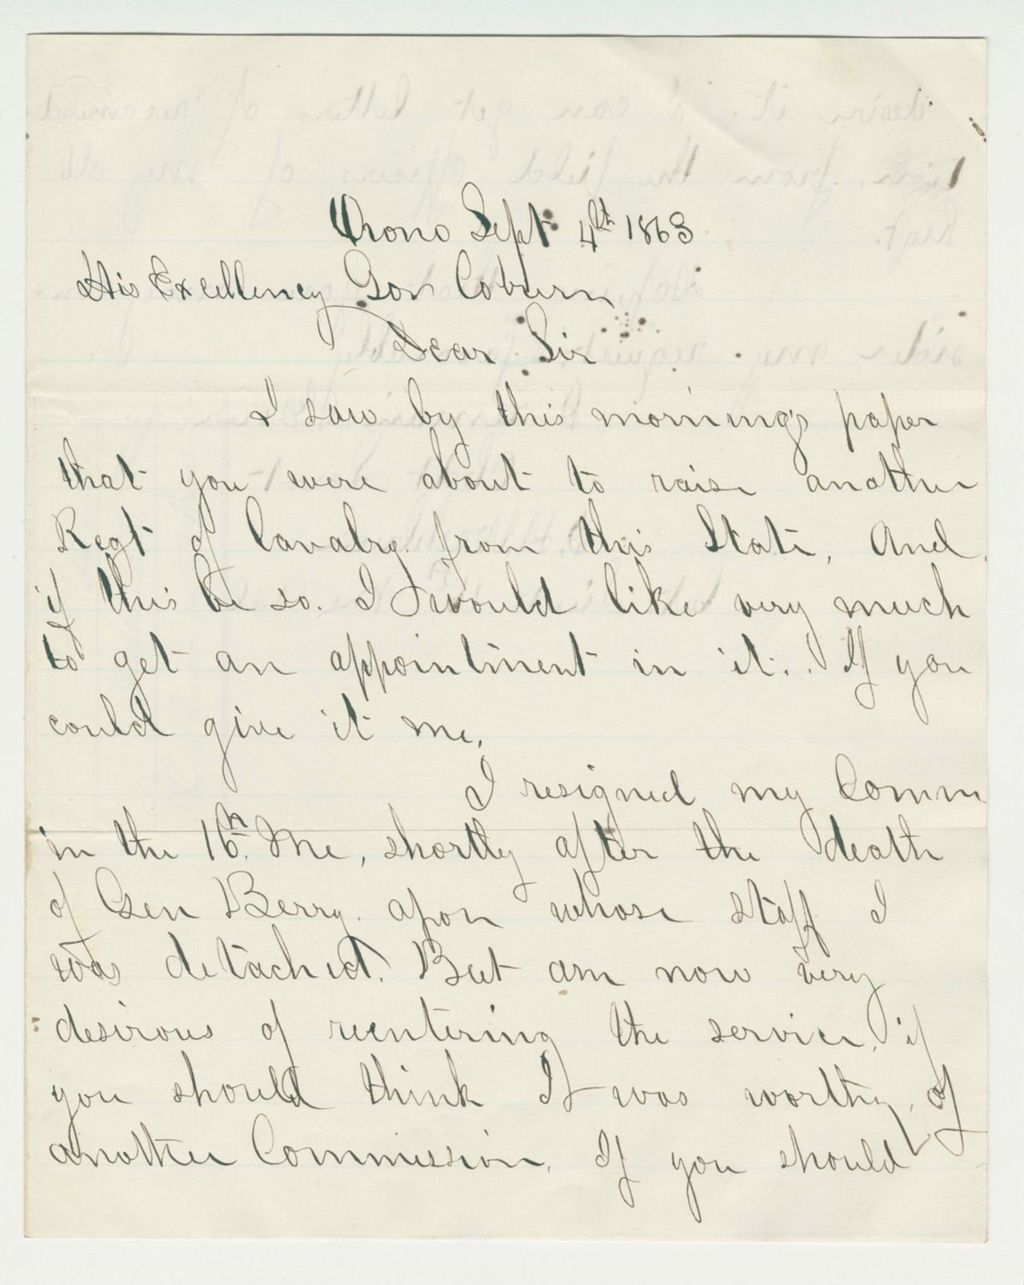 Orono Sept 4th 1863
His Excellency Gov Coburn
Dear Sir
I saw by this morning's paper
that you were about to raise another
Regt of Cavalry from this State, And
if this be so. I would like very much
to get an appointment in it. If you
could give it me.
I resigned my Comm
in the 16th Me, shortly after the death
of Gen Berry. upon whose staff I
was detached. But am now very
desirous of reentering the service, if
you should think I was worthy, of
another Commission. If you should